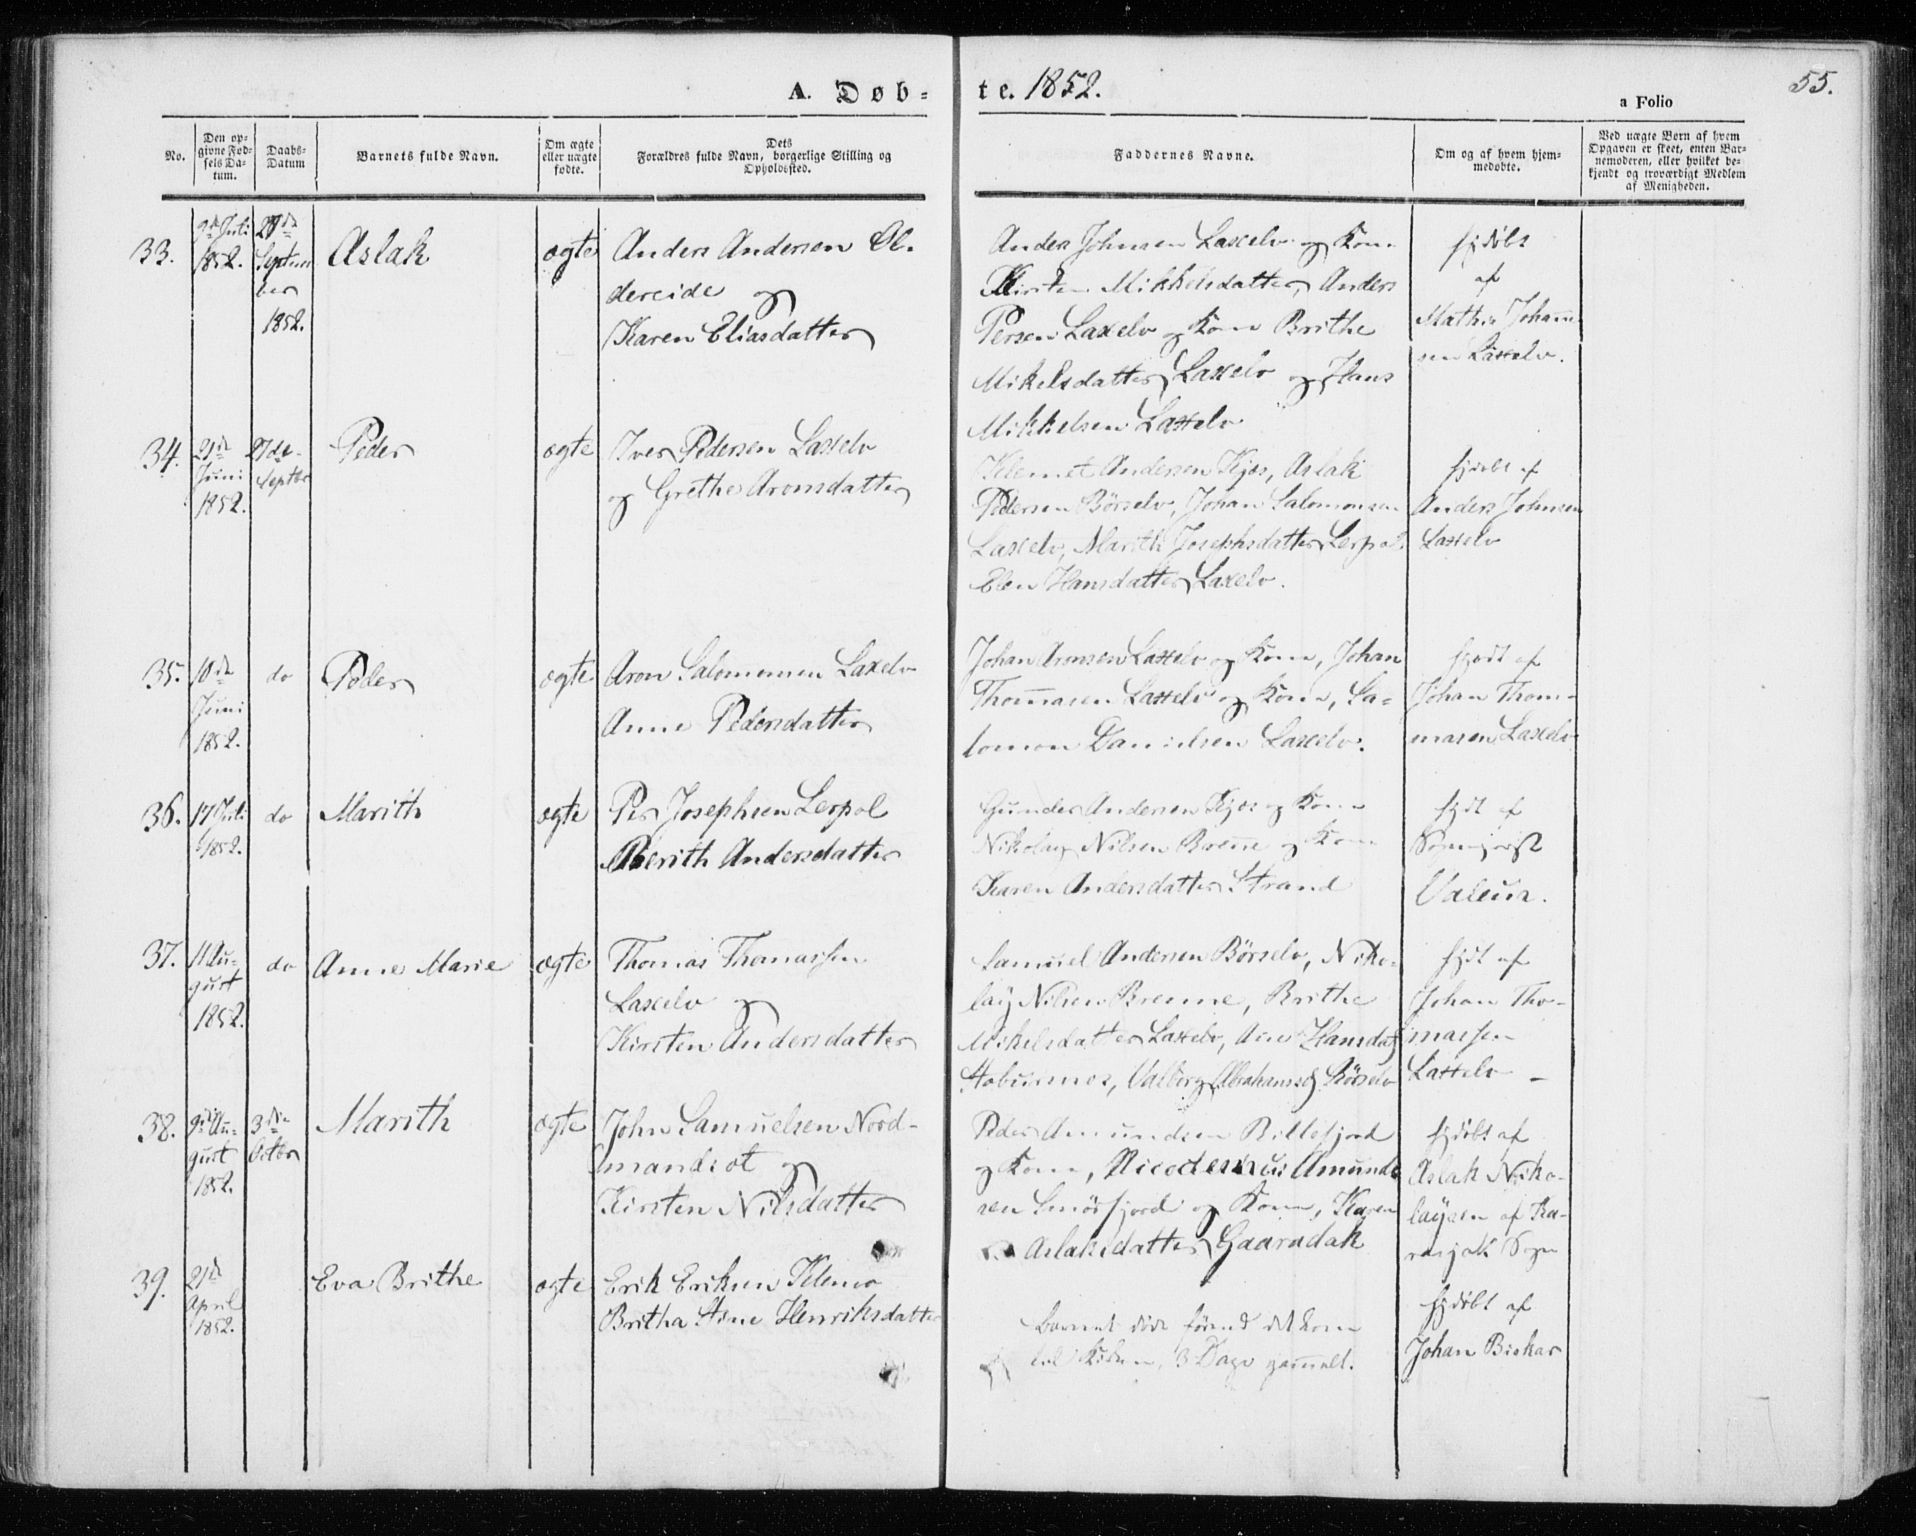 A. Døb-
te. 1852.
55.
a Folio
No.
Den op-
givne Fød-
sels Da-
tum.
Daabs-
Datum
Barnets fulde Navn.
Om ægte
eller uægte
fødte.
Dets
Forældres fulde Navn, borgerlige Stilling og
Opholdssted.
Faddernes Navne.
Om og af hvem hjem-
medøbte.
Ved uægte Børn af hvem
Opgaven er skeet, enten Bar-
nemoderen, eller hvilket be-
kjendt og troværdigt Medlem
af Menigheden.
33.
9de Juli
1852.
Septem
ber
1852.
Aslak
ægte
Anders Andersen Ol-
dereide og
Karen Eliasdatter
Anders Johnsen Laxelv og Kone
Kirsten Mikkelsdatter, Anders
Persen Laxelv og Kone Brithe
Mikelsdatter Laxelv og Hans
Mikkelsen Laxelv
hjdøbt
af
Mathis Johann-
sen Laxelv.
34.
21de
Juni
1852.
27de
Septbr
Peder
ægte
Iver Pedersen Laxelv
og Grethe Aronsdatter
Klemet Andersen Kjæs, Aslak
Pedersen Börselv, Johan Salomonsen
Laxelv, Marith Josephsdatter Lerpol
Elen Hansdatter Laxelv.
hjdøbt af
Anders Johnsen
Laxelv
35.
10de
Juni
1852.
do
Peder
ægte
Aron Salomonsen Laxelv
Anne Pedersdatter
Johan Aronsen Laxelv og Kone, Johan
Thomasen Laxelv og Kone, Sa-
lomon Danielsen Laxelv.
hjdt af
Johan Thom-
masen Laxelv
36.
17 Juli
1852.
do
Marith
ægte
Per Josephsen Lerpol
Berith Andersdatter
Gunder Andersen Kjæs og Kone
Nikolay Nilsen Brenne og Kone
Karen Andersdatter Strand
hjdt af
Sogneprst
Valeur.
37.
11 Au-
gust
1852.
do
Anne Marie
ægte
Thomas Thomassen
Laxelv og
Kirsten Andersdatter
Samuel Andersen Börselv, Niko-
lay Nilsen Brenne, Brithe
Mikelsdatter Laxelv, Ane Hansdat
Valborg Abrahamsd Börselv
hjdt af
Johan Tho-
massen
Laxelv
38.
9de Au-
gust
1852.
3de
Octbr
Marith
ægte
John Samuelsen Nord-
mandsæt og
Kirsten Nilsdatter
Peder Amundsen Billefjord
og Kone, Nicodemus Amund
sen Smörfjord og Kone, Karen
Aslaksdatter Gaaradak
hjdøbt af
Aslak Niko-
laysen af Ka-
rasjok Sogn
39.
21de
April
1852.
Eva Brithe
ægte
Erik Eriksen Klemo
Britha Stine Henriksdatter
Barnet döde förend det kom
til Kirken, 3 Dage gammelt.
hjdøbt af
Johan Biskar